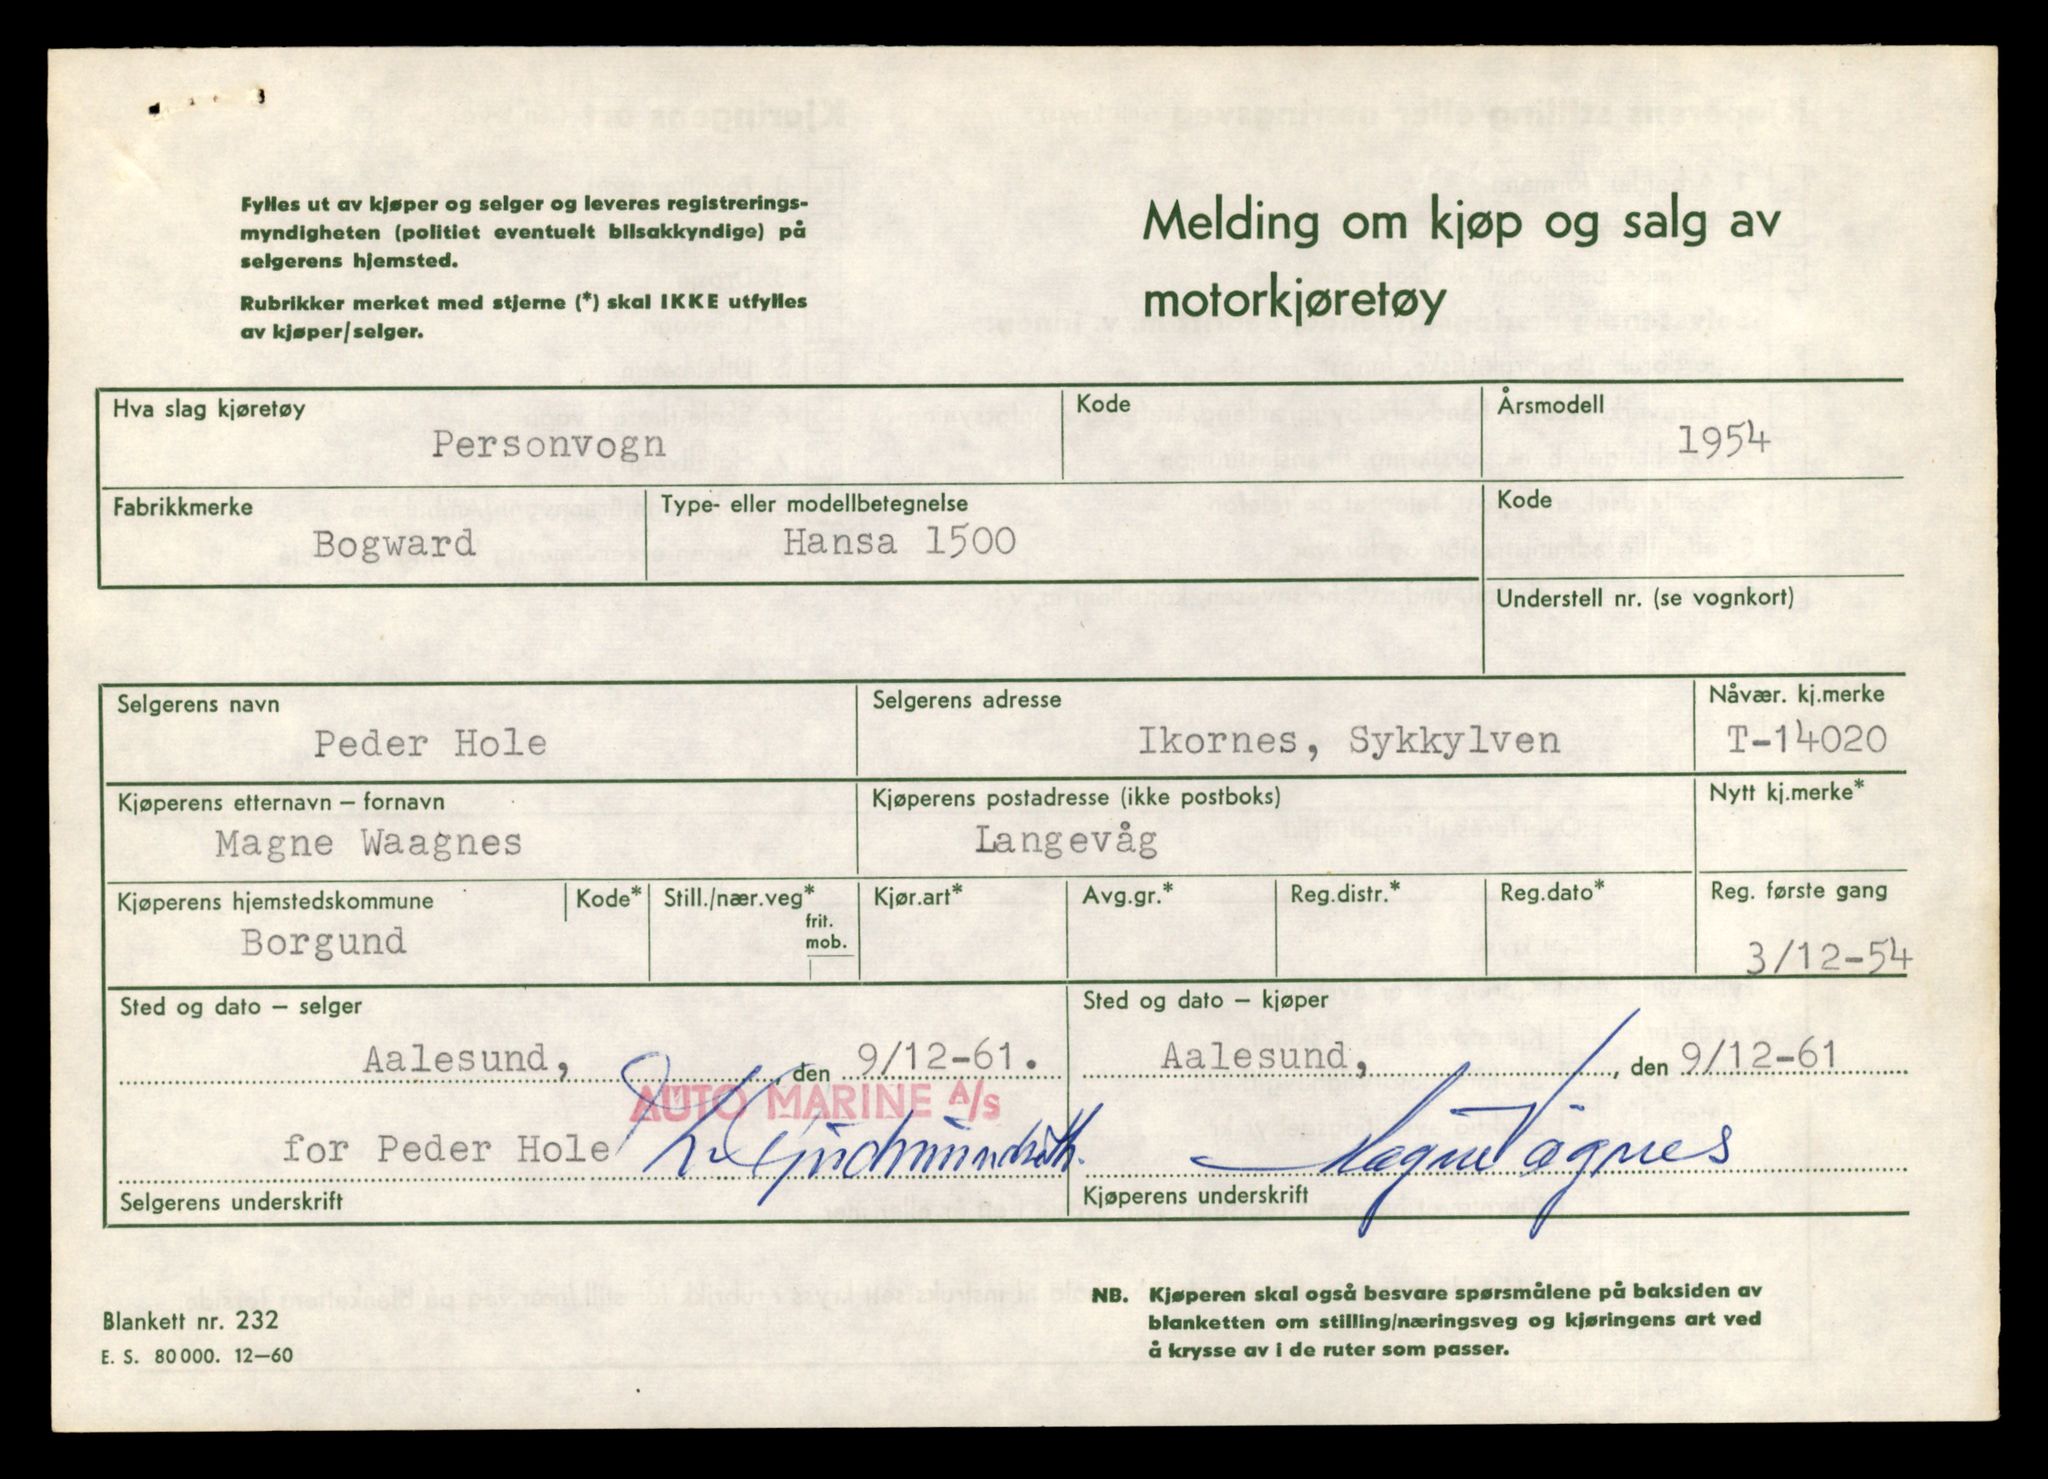 Fylles ut av kjøper og selger og leveres registrerings-
myndigheten (politiet eventuelt bilsakkyndige) på
selgerens hjemsted.
Rubrikker merket med stjerne (*) skal IKKE utfylles
av kjøper/selger.
Melding om kjøp og salg av
motorkjøretøy
Hva slag kjøretøy
Personvogn
Kode
Årsmodell
1954
Fabrikkmerke
Bogward
Type- eller modellbetegnelse
Hansa 1500
Kode
Understell nr. (se vognkort)
Selgerens navn
Peder Hole
Selgerens adresse
Ikornes, Sykkylven
Nåvær. kj.merke
T-14020
Kjøperens etternavn – fornavn
Magne Waagnes
Kjøperens postadresse (ikke postboks)
Langevåg
Nytt kj.merke*
Kjøperens hjemstedskommune
Borgund
Kode*
Still./nær.veg*
frit.
mob.
Kjør.art*
Avg.gr.*
Reg.distr.*
Reg.dato*
Reg. første gang
3/12-54
Sted og dato – selger
Aalesund, den 9/12-61.
AUTO MARINE A/s
for Peder Hole
Selgerens underskrift
Sted og dato – kjøper
Aalesund, den 9/12-61
Magne Vågnes
Kjøperens underskrift
Blankett nr. 232
E. S. 80 000. 12–60
NB. Kjøperen skal også besvare spørsmålene på baksiden av
blanketten om stilling/næringsveg og kjøringens art ved
å krysse av i de ruter som passer.